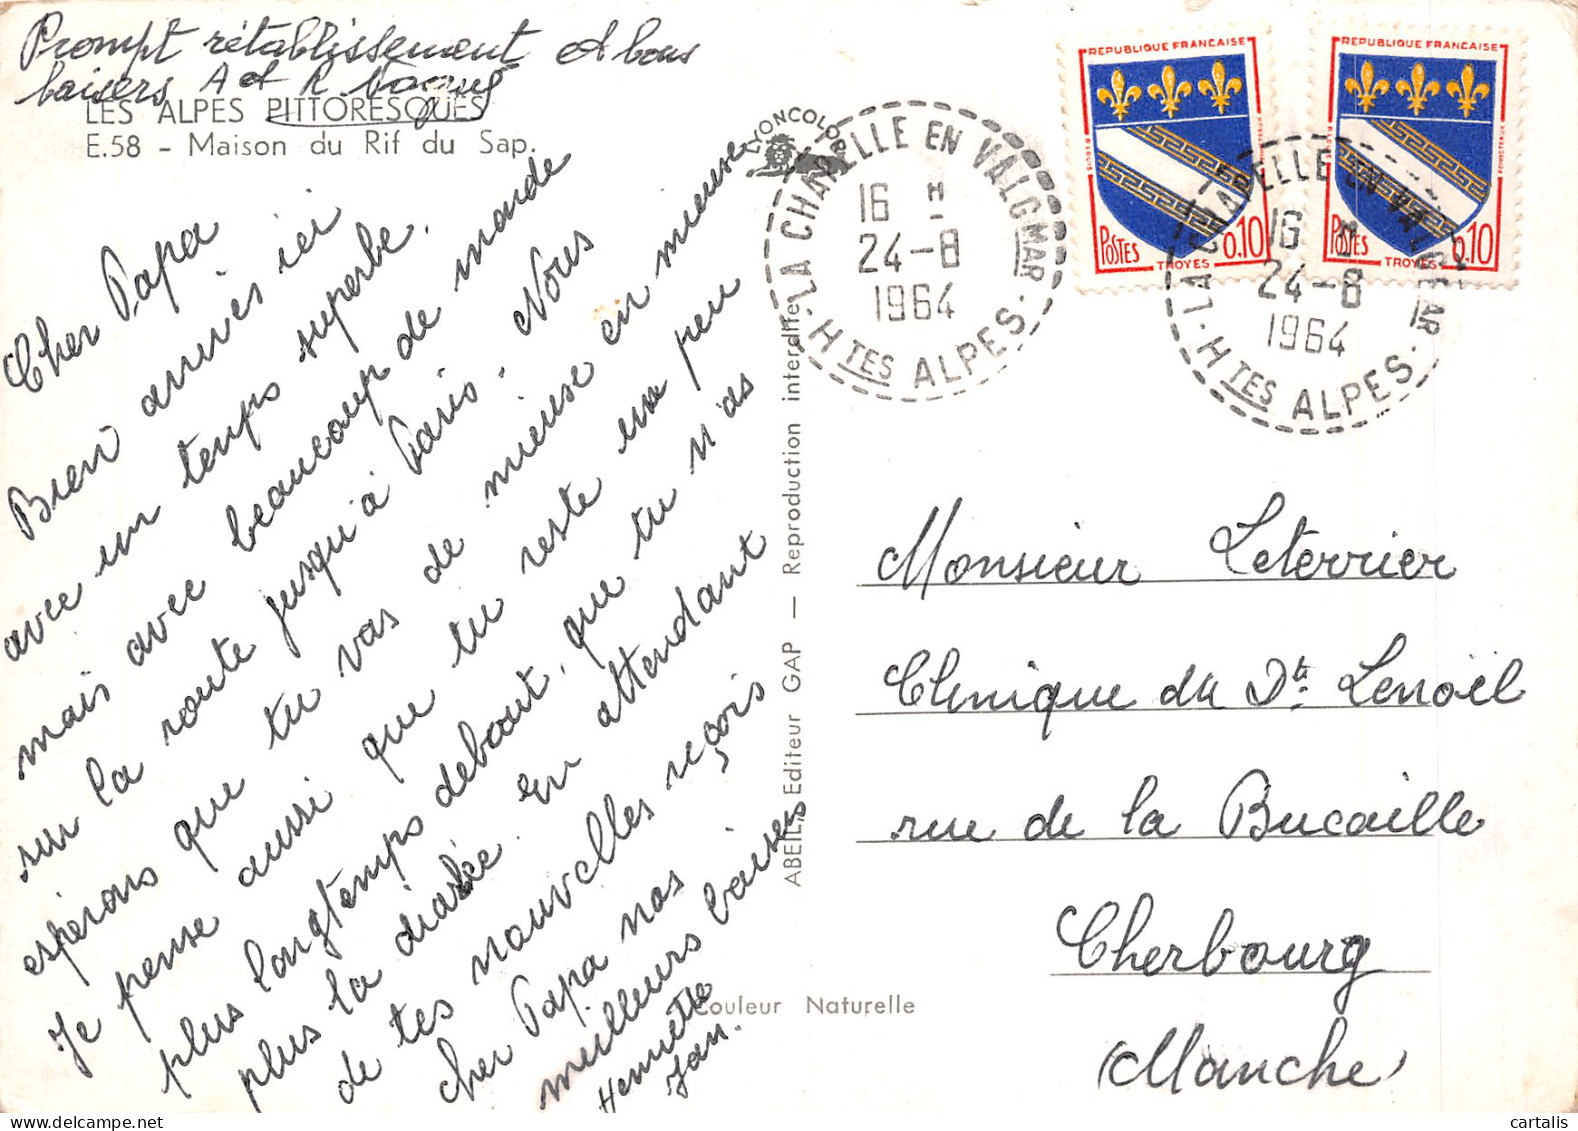 Prompt rétablissement et bons
baisers A et R
LES ALPES PITTORESQUES
E.58 - Maison du Rif du Sap.
Cher Papa
Bien arrivés ici
avec un temps superbe.
mais avec beaucoup de monde
sur la route jusqu'à Paris. Nous
espérons que tu vas de mieux en mieux
Je pense aussi que tu reste un peu
plus longtemps debout, que tu n'as
plus la diarée. En attendant
de tes nouvelles reçois
cher Papa nos
meilleurs baisers
Henriette
Jan.
LYONCOLOR
ABEIL, Editeur GAP — Reproduction interdite
Couleur Naturelle
LA CHAPELLE EN VALGMAR
16 H
24-8
1964
HTES ALPES
REPUBLIQUE FRANCAISE
POSTES
0.10
TROYES
REPUBLIQUE FRANCAISE
POSTES
0.10
TROYES
LA CHAPELLE EN VALGMAR
16 H
24-8
1964
HTES ALPES
Monsieur Leterrier
Clinique du Dt. Lenoël
rue de la Bucaille
Cherbourg
(Manche)
cartalis